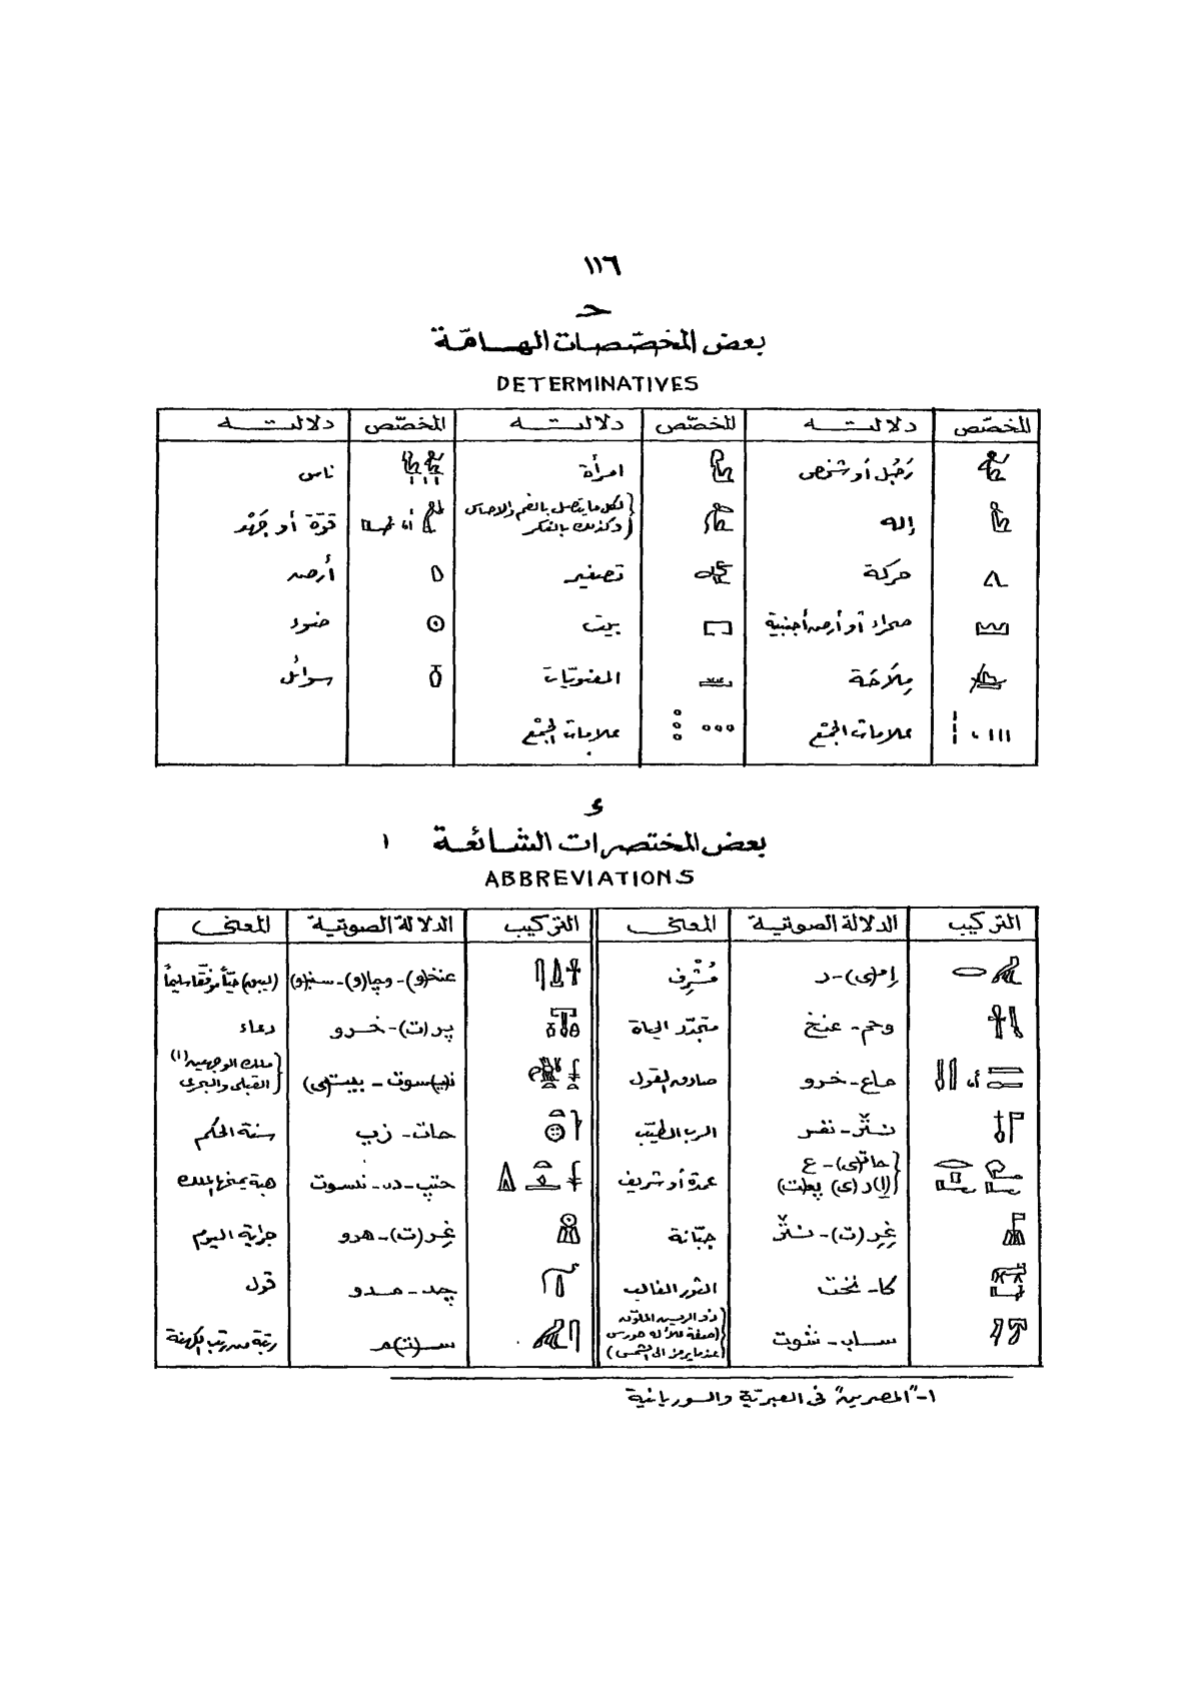 ١١٦
حـ
بعض المخصّصات الهــامّـة
DETERMINATIVES
المخصّص دلالتــه المخصّص دلالتــه المخصّص دلالتــه
رَجُل أو شخص امرأة ناس
إله لكل ما يتصل بالفم والإحساس وكذلك بالفكر أو قوّة أو جَهْد
حركة تصغير أرض
صحراء أو أرض أجنبية بيت ضوء
مِلاَحَة المعنويّات سوائل
علامات الجَمْع علامات الجَمْع
ء
بعض المختصرات الشــائعــة ١
ABBREVIATIONS
التركيب الدلالة الصوتيــة المعنى التركيب الدلالة الصوتيــة المعنى
إم(ى)-ر مُشْرِف عنخ(و)-وچا(و)-سنب(و) (ليبق) حيّاً موفّقا سليماً
وحم-عنخ متجدّد الحياة پر(ت)-خرو دعاء
أو ماع-خرو صادق القول ن(ي)سوت-بيت(ى) ملك الوجهين(١) القبلى والبحرى
نـثـر-نفـر الرب الطيّب حات-زپ سنة الحكم
حات(ى)-ع (إ)ر(ى) پعت) عمدة أو شريف حتپ-دى-نسوت هبة يمنحها الملك
غِر(ت)-نـثـر جبّانة غِر(ت)-هرو جراية اليوم
كا-نخت الثور الغالب چد-مدو قول
ســاب-شوت ذو الريش الملوّن (صفة للاله حورس عندما يرمز الى الشمس) ســ(ت)م رتبة من رتب الكهنة
١-"المصرين" فى العبريّة والسـوريـانيـة